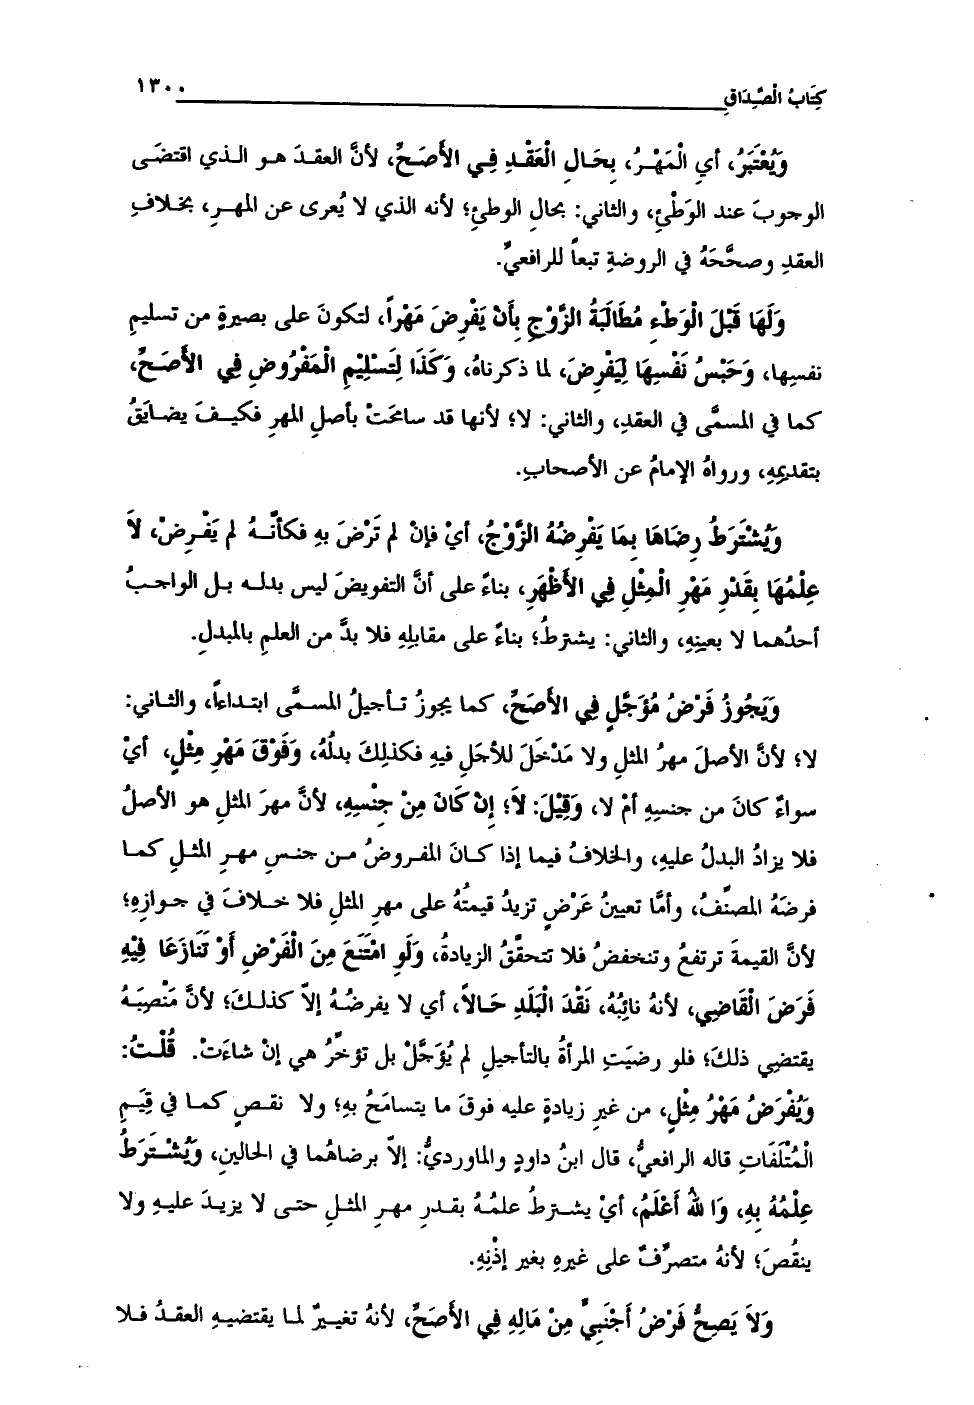 كِتَابُ الْصَّدَاقِ ١٣٠٠
وَيُعْتَبَرُ، أي الْمَهْرُ، بِحَالِ الْعَقْدِ فِي الأَصَحِّ، لأنَّ العقدَ هو الذي اقتضَى
الوجوبَ عند الوَطْئِ، والثاني: بحالِ الوطئِ؛ لأنه الذي لا يُعرى عن المهرِ، بخلافِ
العقدِ وصحَّحَهُ في الروضةِ تبعاً للرافعيِّ.
وَلَهَا قَبْلَ الْوَطْءِ مُطَالَبَةُ الزَّوْجِ بِأَنْ يَفْرِضَ مَهْراً، لتكونَ على بصيرةٍ من تسليمِ
نفسِها، وَحَبْسُ نَفْسِهَا لِيَفْرِضَ، لما ذكرناهُ، وَكَذَا لِتَسْلِيْمِ الْمَفْرُوضِ فِي الأَصَحِّ،
كما في المسمَّى في العقدِ، والثاني: لا؛ لأنها قد سامحَتْ بأصلِ المهرِ فكيفَ يضايَقُ
بتقديمِهِ، ورواهُ الإمامُ عن الأصحابِ.
وَيُشْتَرَطُ رِضَاهَا بِمَا يَفْرِضُهُ الزَّوْجُ، أيْ فإنْ لم تَرْضَ بهِ فكأنَّهُ لم يَفْرِضْ، لاَ
عِلْمُهَا بِقَدْرِ مَهْرِ الْمِثْلِ فِي الأَظْهَرِ، بناءً على أنَّ التفويضَ ليس بدله بل الواجبُ
أحدُهما لا بعينِهِ، والثاني: يشترطُ؛ بناءً على مقابلِهِ فلا بدَّ من العلمِ بالمبدلِ.
وَيَجُوزُ فَرْضُ مُؤَجَّلٍ فِي الأَصَحِّ، كما يجوزُ تأجيلُ المسمَّى ابتداءاً، والثاني:
لا؛ لأنَّ الأصلَ مهرُ المثلِ ولا مَدْخَلَ للأجَلِ فيهِ فكذلِكَ بدلُهُ، وَفَوْقَ مَهْرِ مِثْلٍ، أيْ
سواءٌ كانَ من جنسِهِ أمْ لا، وَقِيْلَ: لاَ؛ إِنْ كَانَ مِنْ جِنْسِهِ، لأنَّ مهرَ المثلِ هو الأصلُ
فلا يزادُ البدلُ عليهِ، والخلافُ فيما إذا كانَ المفروضُ من جنسِ مهرِ المثلِ كما
فرضَهُ المصنِّفُ، وأمَّا تعيينُ عَرْضٍ تزيدُ قيمتُهُ على مهرِ المثلِ فلا خلافَ في جوازِهِ؛
لأنَّ القيمةَ ترتفعُ وتنخفضُ فلا تتحقَّقُ الزيادةُ، وَلَوِ امْتَنَعَ مِنَ الْفَرْضِ أَوْ تَنَازَعَا فِيْهِ
فَرَضَ الْقَاضِي، لأنهُ نائِبُهُ، نَقْدَ الْبَلَدِ حَالاً، أي لا يفرضُهُ إلاّ كذلكَ؛ لأنَّ مَنْصِبَهُ
يقتضِي ذلكَ؛ فلو رضيَتِ المرأةُ بالتأجيلِ لم يُؤَجَّلْ بل تؤخِّرُ هي إنْ شاءَتْ. قُلْتُ:
وَيُفْرَضُ مَهْرُ مِثْلٍ، من غيرِ زيادةٍ عليه فوقَ ما يتسامَحُ بهِ؛ ولا نقصٍ كما في قِيَمِ
الْمُتْلَفَاتِ قاله الرافعيُّ، قال ابنُ داودٍ والماورديُّ: إلاّ برضاهُما في الحالينِ، وَيُشْتَرَطُ
عِلْمُهُ بِهِ، وَا للهُ أَعْلَمُ، أيْ يشترطُ علمُهُ بقدرِ مهرِ المثلِ حتى لا يزيدَ عليهِ ولا
ينقُصَ؛ لأنهُ متصرِّفٌ على غيرهِ بغيرِ إذْنِهِ.
وَلاَ يَصِحُّ فَرْضُ أَجْنَبِيٍّ مِنْ مَالِهِ فِي الأَصَحِّ، لأنهُ تغييرٌ لما يقتضيهِ العقدُ فلا